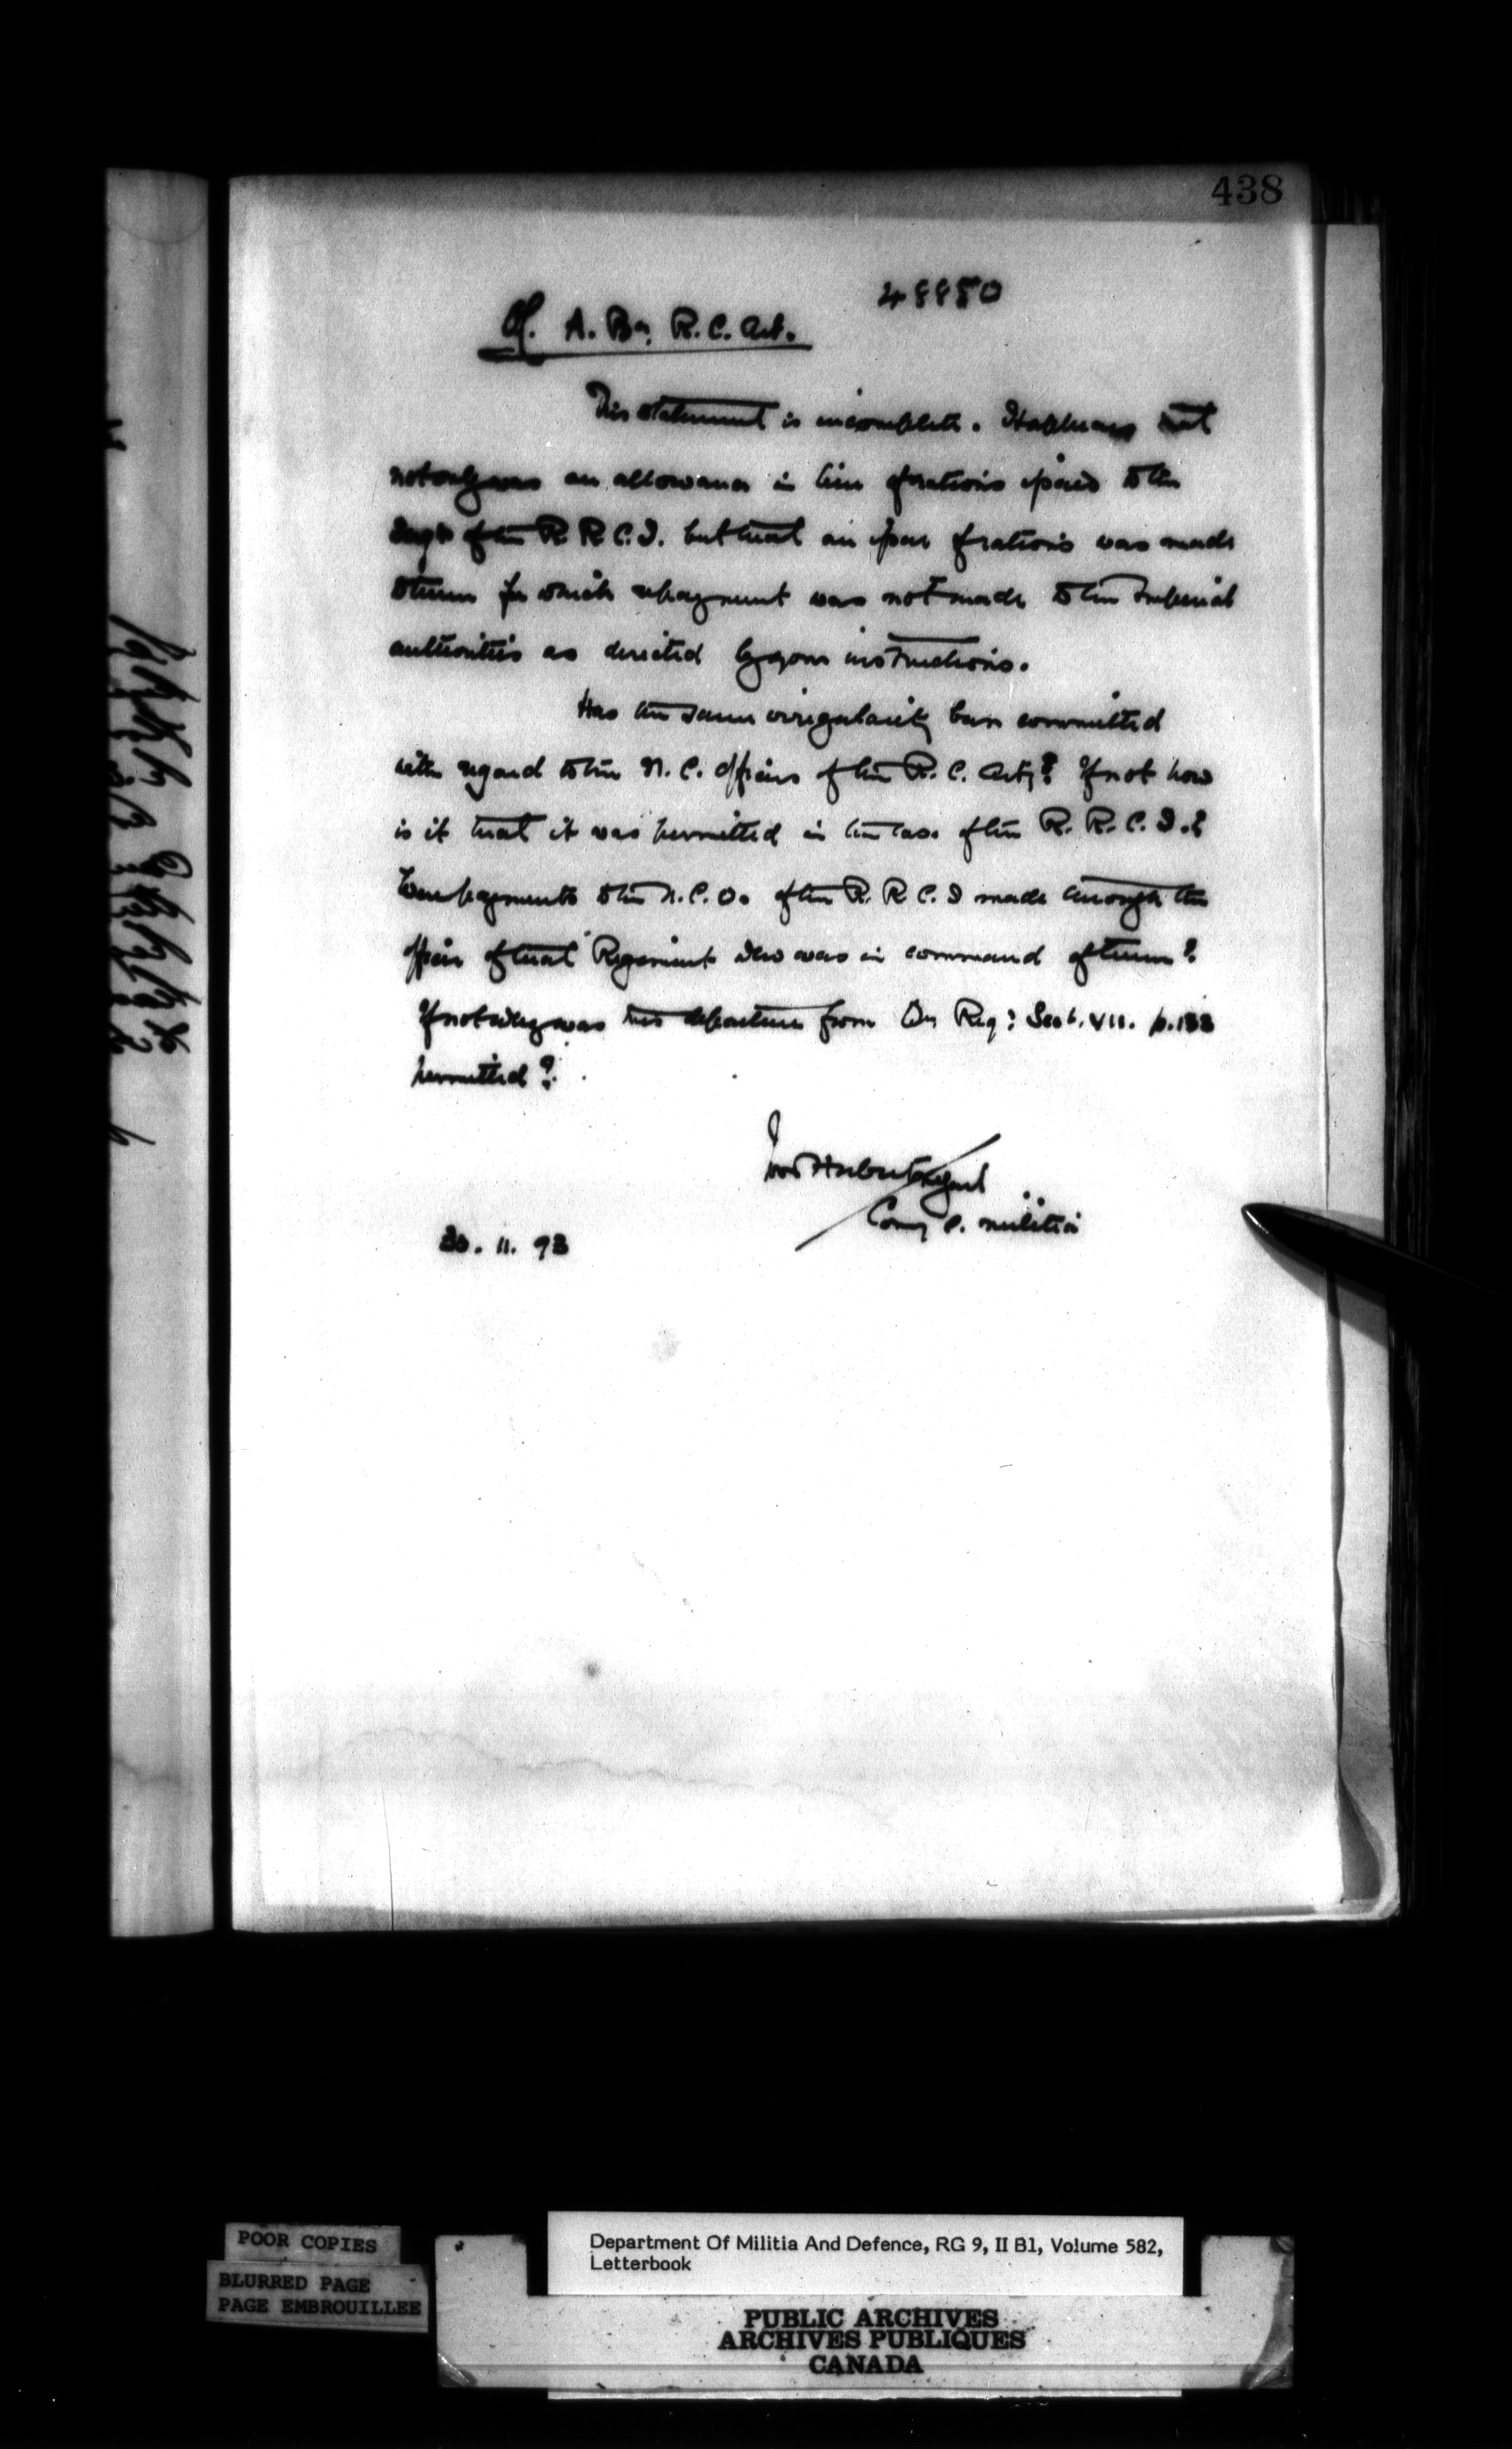 438
48850
A. By. R. C. Art.
This statement is incomplete. It appears that
not only was an allowance in lieu of rations paid to the
of the R. R. C. I. but that an issue of rations was made
to them for which repayment was not made to the Imperial
authorities as directed by your instructions.
Has the same irregularity been committed
with regard to the N. C. Officers of the R. C. Arty? If not how
is it that it was permitted in the case of the R. R. C. I.?
Were payments to the N. C. Os of the R. R. C. I made through the
officer of that Regiment who was in command of them?
If not why was this departure from Reg: Sect. VII. p. 133
permitted?
Ivor Herbert
Comg C. Militia
30. 11. 93
POOR COPIES
BLURRED PAGE
PAGE EMBROUILLEE
Department Of Militia And Defence, RG 9, II B1, Volume 582,
Letterbook
PUBLIC ARCHIVES
ARCHIVES PUBLIQUES
CANADA